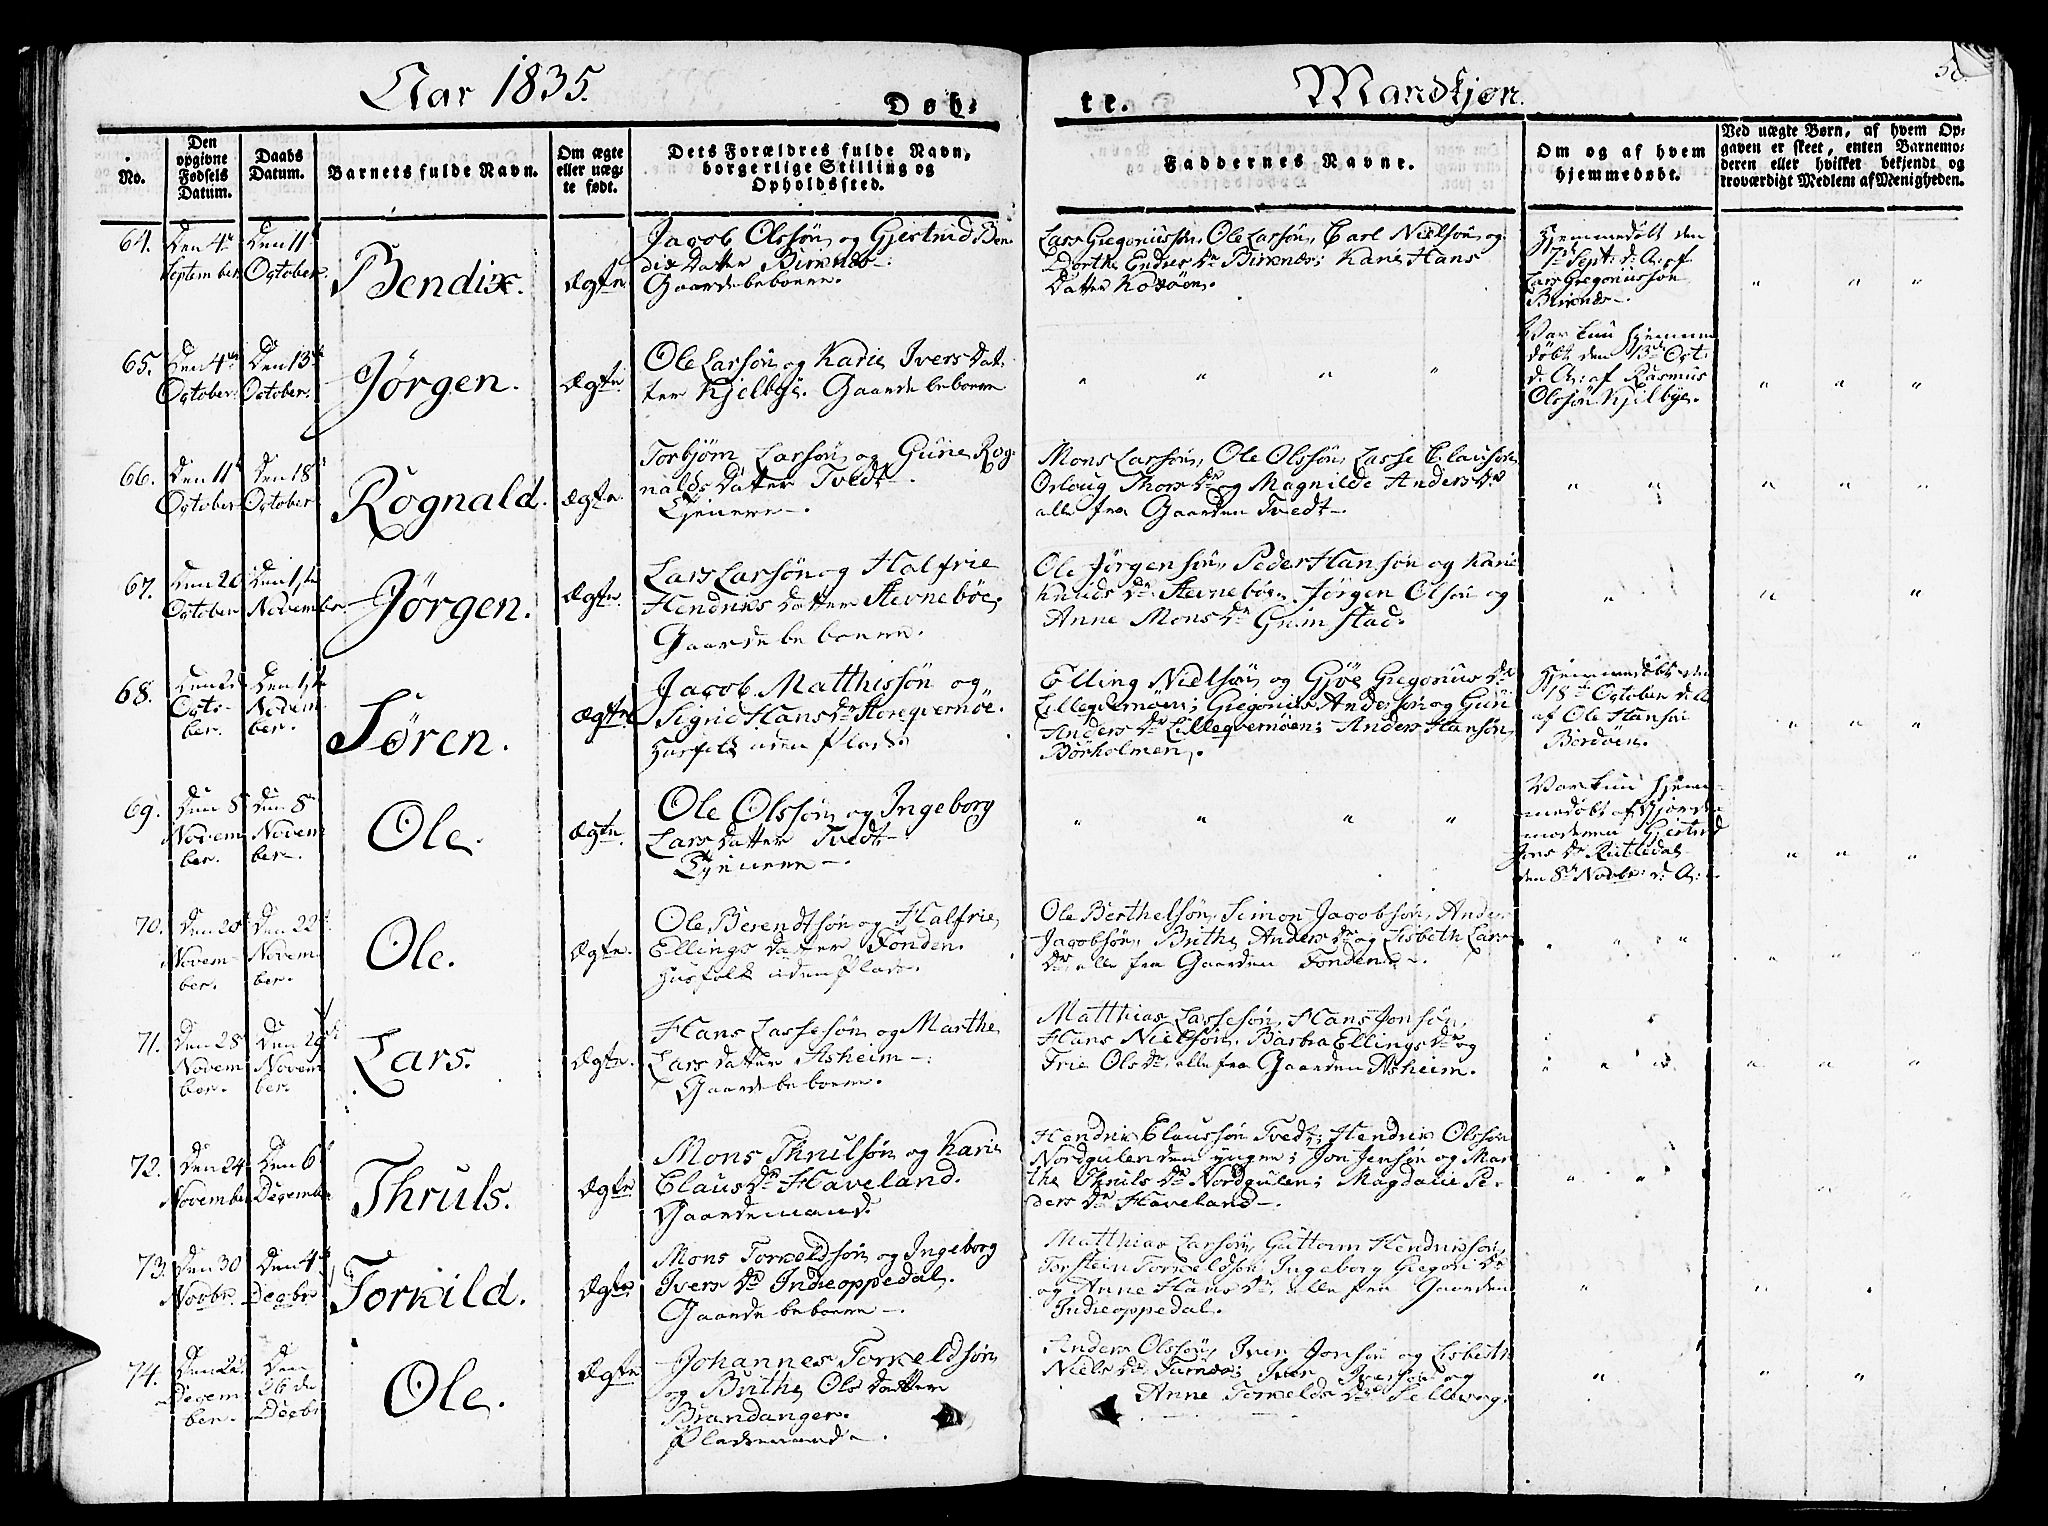 Aar 1835.
Døb-
te.
Mandkjøn.
No.
Den opgivne Fødsels Datum.
Daabs Datum.
Barnets fulde Navn.
Om ægte eller uæg-
te født.
Dets Forældres fulde Navn,
borgerlige Stilling og
Opholdssted.
Faddernes Navne.
Om og af hvem
hjemmedøbt.
Ved uægte Børn, af hvem Op-
gaven er skeet, enten Barnemo-
deren eller hvilket bekjendt og
troværdigt Medlem af Menigheden.
64.
Den 4de
September
Den 11te
October.
Bendix.
Ægte.
Jacob Olssøn og Gjertrud Ben-
dix Datter Birknes.
Gaardebeboere.
Lars Gregoriussøn, Ole Larsøn, Carl Nielsøn og
Dorthe Endres Dr Birknes; Kari Hans
Datter Kosøen.
Hjemmedøbt den
7de Sept: d. A. af
Lars Gregoriussøn
Birknes.
65.
Den 4de
October.
Den 13de
October.
Jørgen.
Ægte.
Ole Larsøn og Karie Ivers Dat-
ter Kjelbye. Gaardebeboere
Var kun hjemme
døbt den 13de Oct:
d. A: af Rasmus
Olssøn Kjelbye.
66.
Den 11te
October
Den 18de
October
Rognald.
Ægte.
Torbjørn Larsøn og Gune Rog-
nalds Datter Tvedt.
Tjenere.
Mons Larsøn, Ole Olssøn, Lasse Clausøn
Orloug Thors Dr og Magnilde Anders Dr
alle fra Gaarden Tvedt.
67.
Den 20
October
Den 1ste
November.
Jørgen.
Ægte.
Lars Larsøn og Halfrie
Hendriks Datter Stevnebøe,
Gaardebeboere.
Ole Jørgensøn, Peder Hansøn og Kari
Knuds Dr Stevnebøe. Jørgen Olsøn og
Anne Mons Dr Grimstad.
68.
Octo-
ber.
Den 1ste
Novem-
ber.
Søren.
Ægte
Jacob Matthissøn og
Sigrid Hans Dr Storeqvernøe.
Husfolk uden Plads
Elling Nielsøn og Gjøe Gregorius Dr
Gregorius Andersøn og Guri
Anders Dr Lilleqvernøen; Anders Hansøn,
Børholmen.
Hjemmedøbt den
18de October d. A
af Ole Hansøn
Bordøen.
69.
Den 8
Novem
ber.
Den 8de
Novem
ber.
Ole.
Ægte.
Ole Olssøn og Ingeborg
Lars Datter Tvedt
Tjenere.
Var kun hjem-
medøbt af Gjorde-
moderen Gjertrud
Jens Dr Rutledal
den 8de Novbr: d. A:
70.
Novem-
ber.
Den 22de
Novem
ber.
Ole.
Ægte.
Ole Berendtsøn og Halfrie
Ellings Datter Fonden.
Husfolk uden Plads.
Ole Berthelsøn, Simon Jacobsøn, Anders
Jacobsøn, Brithe Anders Dr og Lisbeth Lars
Dr, alle fra Gaarden Fonden.
71.
Den 28
Novem
ber.
Den 29de
Novem
ber.
Lars.
Ægte.
Hans Lassesøn og Marthe
Lars Datter Asheim.
Gaardebeboere.
Matthias Lassesøn, Hans Jonsøn,
Hans Nielsøn, Barbra Ellings Dr og
Frie Ols Dr, alle fra Gaarden Asheim.
72.
Den 24
November
Den 6te
December
Thruls.
Ægte
Mons Thrulsøn og Kari
Claus Dr Haveland.
Gaardemand.
Hendrik Claussøn Tvedt; Hendrik Olssøn
Nordgulen den yngre; Jon Jensøn og Mar-
the Thruls Dr Nordgulen; Magdalie Pe-
ders Dr Haveland.
73.
Den 30
Novbr.
Den 4de
Decbr
Torkild.
Ægte
Mons Torkeldsøn og Ingeborg
Ivers Dr Indreoppedal.
Gaardebeboere.
Matthias Larsøn, Guttorm Hendrikssøn,
Torstein Torkeldsøn, Ingeborg Gregori Dr
og Anne Hans Dr, alle fra Gaarden
Indreoppedal.
74.
Decem
ber.
Den
26de
Decbr
Ole.
Ægte
Johannes Torkeldsøn
og Brithe Ols Datter
Brandanger.
Pladsemand.
Anders Olssøn, Iver Jonsøn og Lisbeth
Niels Dr Iver Iversøn og
Anne Torkelds Dr